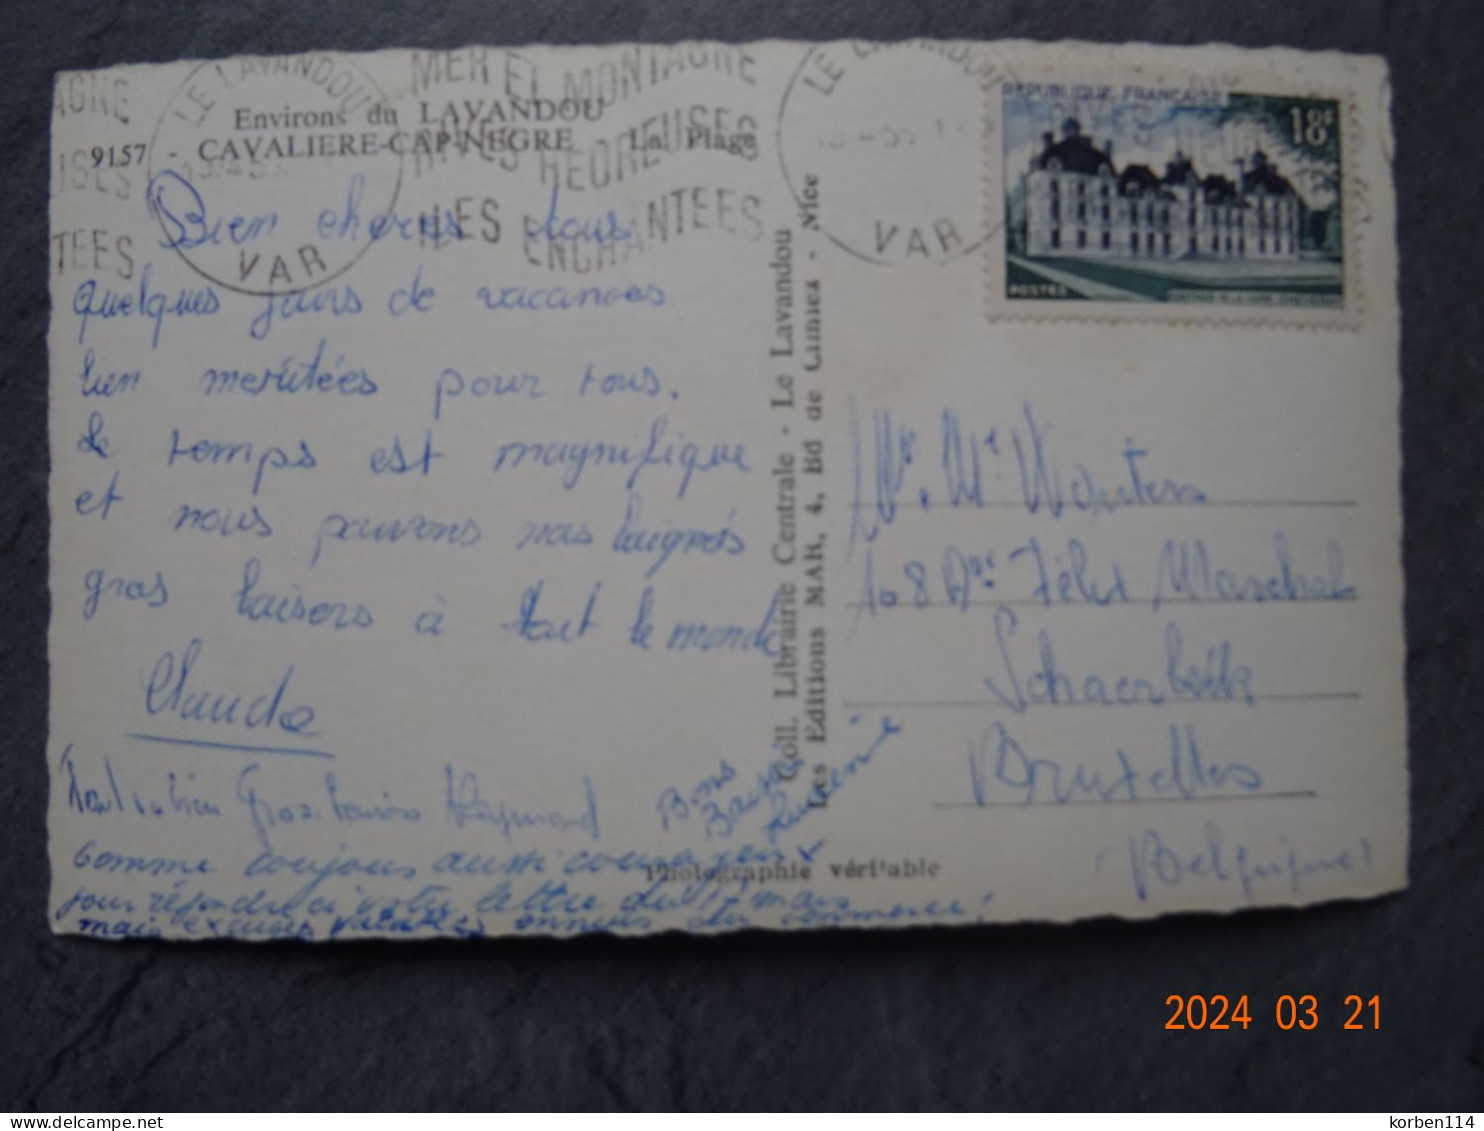 LE LAVANDOU
VAR
MER ET MONTAGNE
RIVES HEUREUSES
ILES ENCHANTEES
AGNE
USES
TEES
LE LAVANDOU
VAR
REPUBLIQUE FRANÇAISE
18F
POSTES
Environs du LAVANDOU
9157 - CAVALIERE-CAP-NEGRE La Plage
Bien cheres tous
quelques jours de vacances
bien meritées pour tous.
Le temps est magnifique
et nous pouvons nous baignés
gros baisers à tout le monde
Claude
Gros baisers Raymond
Bons
Baisers
Lucienne
Comme toujours aussi courageux
pour répondre à votre lettre du 17 mars
mais excuses valables ennuis du commerce!
Coll. Librairie Centrale - Le Lavandou
Les Editions MAR, 4, Bd de Cimiez - Nice
Photographie véritable
Mr. Me Wouters
108 Ave Félix Marchal
Schaerbeek
Bruxelles
(Belgique)
2024 03 21
delcampe.net
korben114